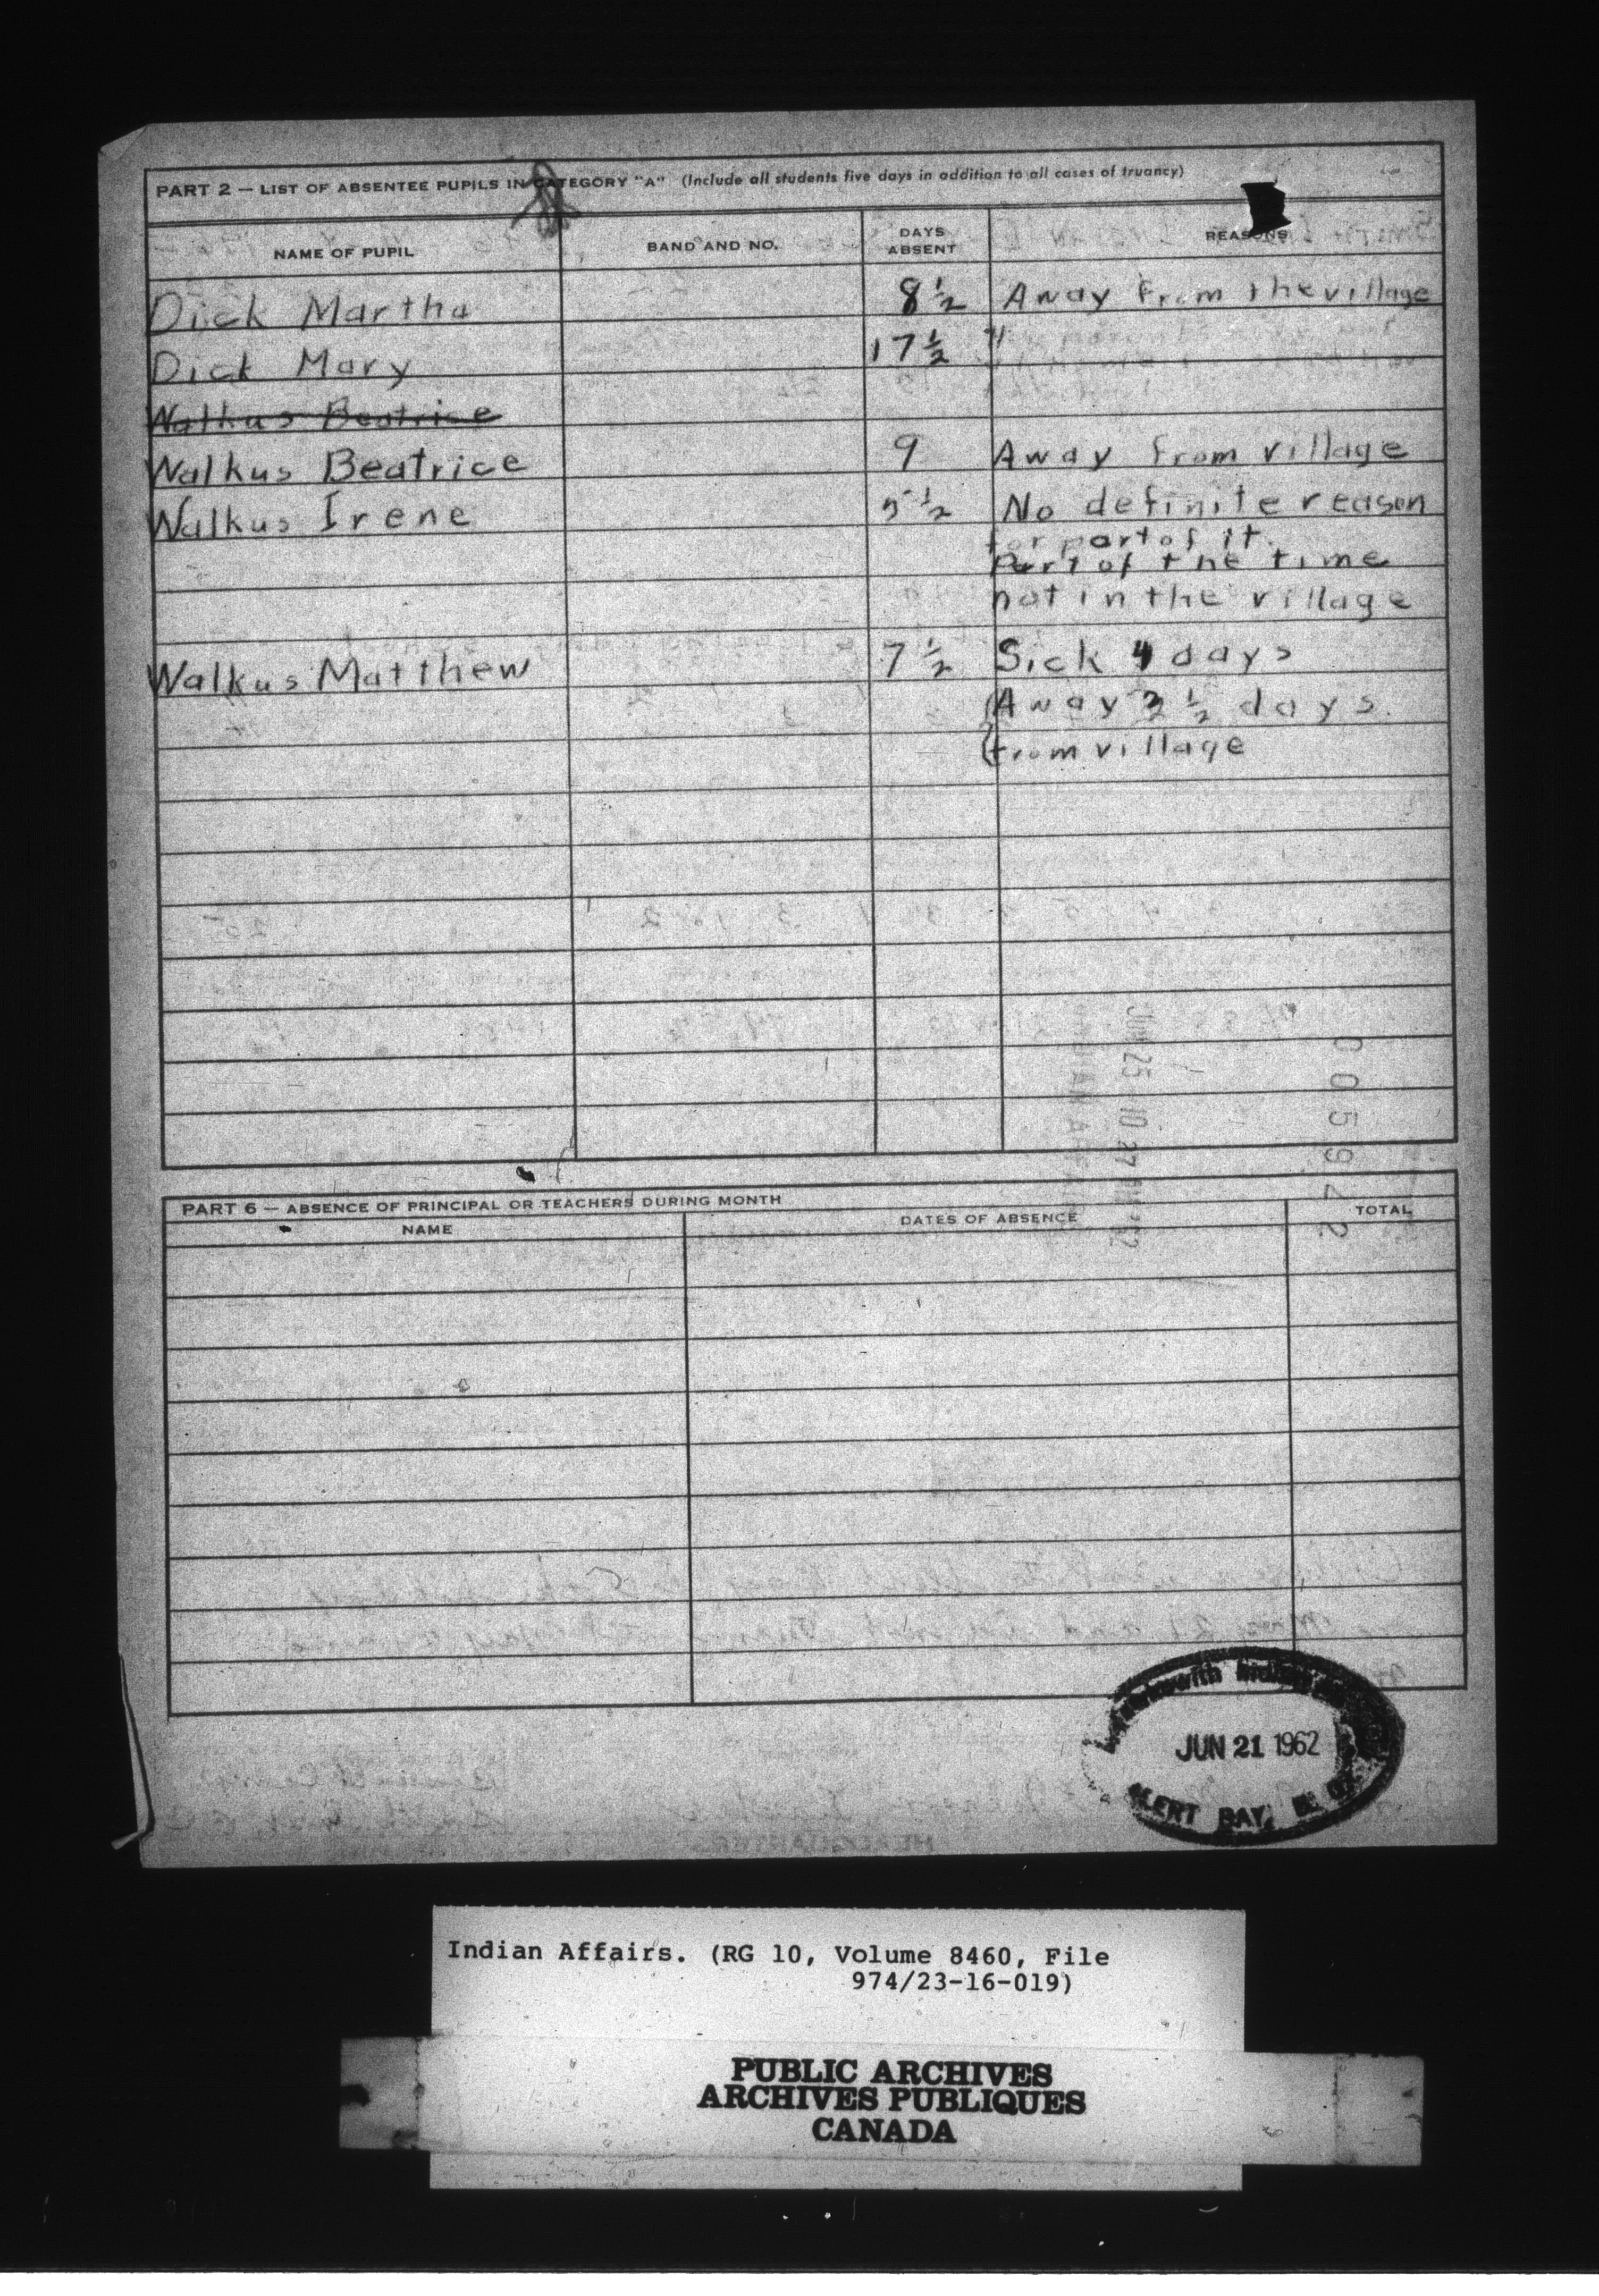 PART 2 — LIST OF ABSENTEE PUPILS IN CATEGORY "A" (Include all students five days in addition to all cases of truancy)
NAME OF PUPIL BAND AND NO. DAYS ABSENT REASONS
Dick Martha 8 ½ Away From the village
Dick Mary 17 ½ "
Walkus Beatrice
Walkus Beatrice 9 Away from village
Walkus Irene 5 ½ No definite reason
for part of it.
Part of the time
not in the village
Walkus Matthew 7 ½ Sick 4 days
Away 3 ½ days.
from village
PART 6 — ABSENCE OF PRINCIPAL OR TEACHERS DURING MONTH
NAME DATES OF ABSENCE TOTAL
JUN 21 1962
ALERT BAY, B. C.
HEADQUARTERS
Indian Affairs. (RG 10, Volume 8460, File
974/23-16-019)
PUBLIC ARCHIVES
ARCHIVES PUBLIQUES
CANADA